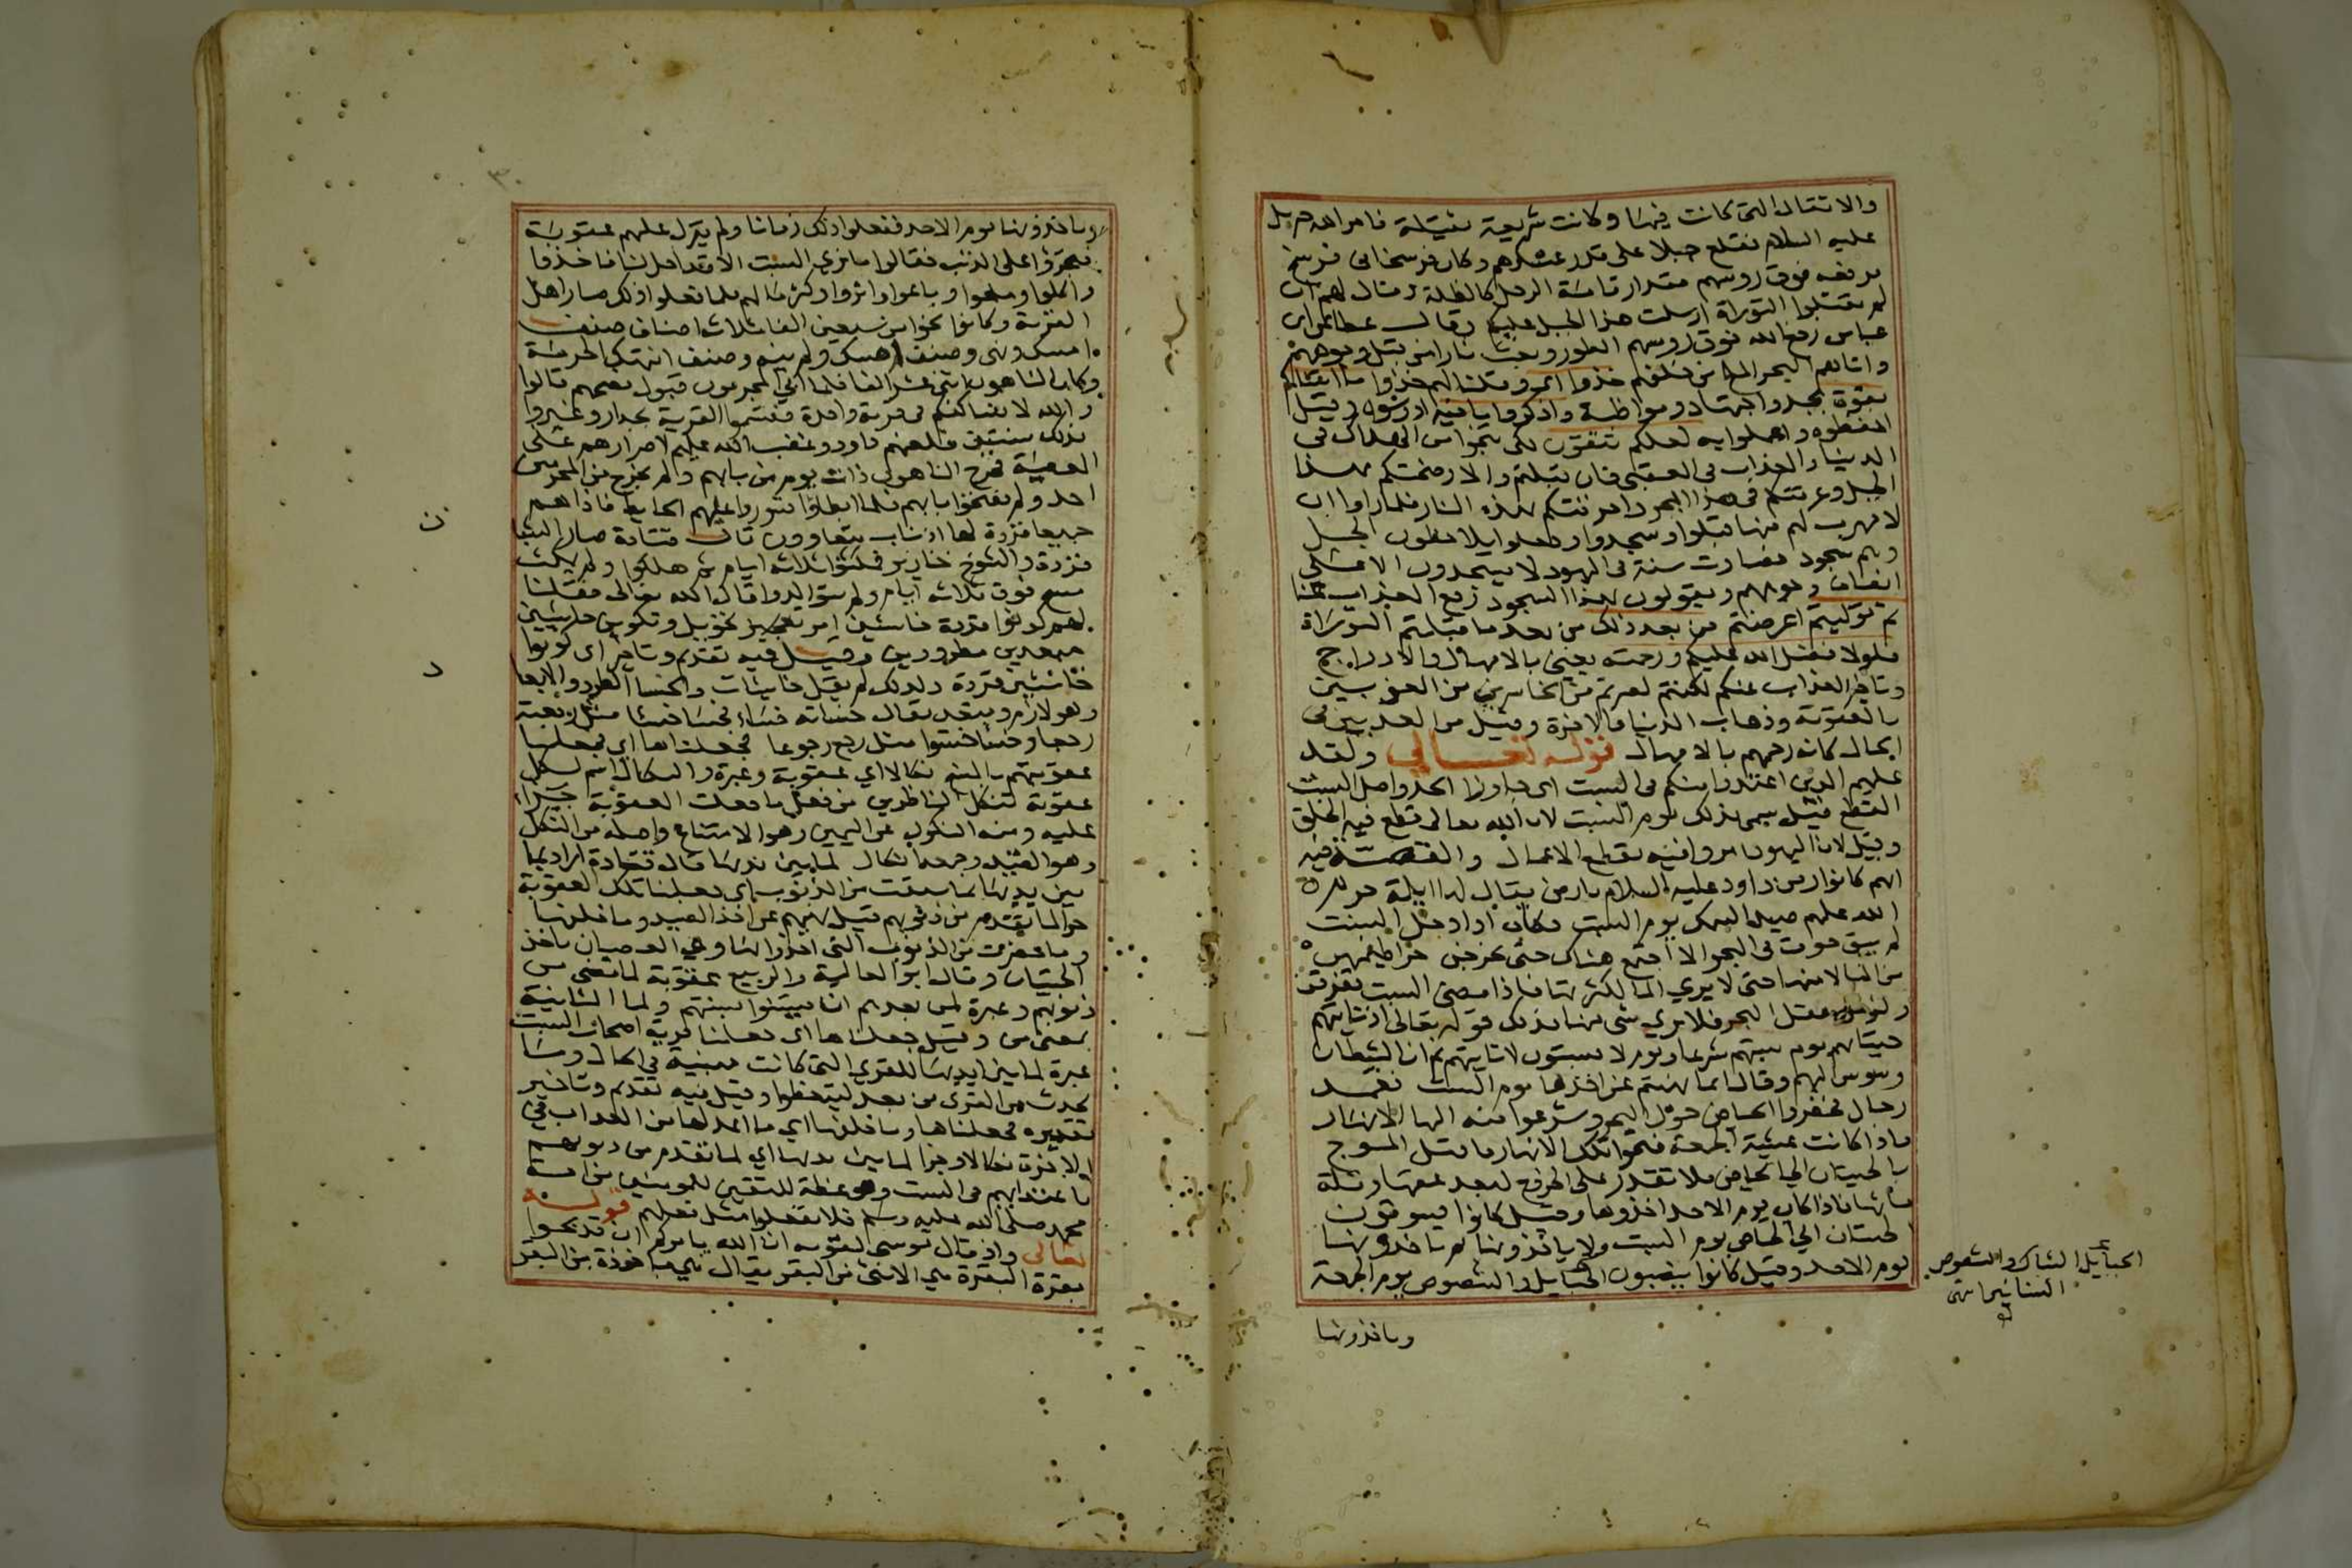 والاثقال التي كانت فيها وكانت شريعة ثقيلة فامر الله جبريل
عليه السلام فقلع جبلا على قدر عسكرهم وكان فرسخا في فرسخ
فرفعه فوق روسهم مقدار قامة الرجل كالظلة وقال لهم ان
لم تقبلوا التوراة ارسلت هذا الجبل عليكم وقال عطا عن ابن
عباس رفع الله فوق روسهم الطور وبعث نارا من قبل وجوههم
واتاهم البحر المالح من خلفهم خذوا اي وقلنا لهم خذوا ما اتيناكم
بقوة بجد واجتهاد ومواظبة واذكروا ما فيه ادرسوه وقيل
احفظوه واعملوا به لعلكم تتقون لكي تنجوا من الهلاك في
الدنيا والعذاب في العقبى فان قبلتم والا رضختكم بهذا
الجبل وغرقتكم في هذا البحر واحرقتكم بهذه النار فلما راوا ان
لا مهرب لهم منها قبلوا وسجدوا وجعلوا يلاحظون الجبل
وهم سجود فصارت سنة في اليهود لا يسجدون الا على
انصاف وجوههم ويقولون بهذا السجود رفع العذاب عنا
ثم توليتم اعرضتم من بعد ذلك من بعد ما قبلتم التوراة
فلولا فضل الله عليكم ورحمته يعني بالامهال والادراج
وتاخير العذاب عنكم لكنتم لصرتم من الخاسرين من المغبونين
بالعقوبة وذهاب الدنيا والاخرة وقيل من المعذبين في
الحال كانه رحمهم بالامهال قوله تعالى ولقد
علمتم الذين اعتدوا منكم في السبت اي جاوزوا الحد واصل السبت
القطع قيل سمي بذلك يوم السبت لان الله تعالى قطع فيه الخلق
وقيل لان اليهود امروا فيه بقطع الاعمال والقصة فيه
انهم كانوا زمن داود عليه السلام بارض يقال لها ايلة حرم
الله عليهم صيد السمك يوم السبت فكان اذا دخل السبت
لم يبق حوت في البحر الا اجتمع هناك حتى يخرجن خراطيمهن
من الماء لامنها حتى لا يرى الماء لكثرتها فاذا مضى السبت تفرقن
ولزمن مقل البحر فلا يرى شي منها فذلك قوله تعالى اذ تاتيهم
حيتانهم يوم سبتهم شرعا ويوم لا يسبتون لا تاتيهم ثم ان الشيطان
وسوس اليهم وقال انما نهيتم عن اخذها يوم السبت فعمد
رجال فحفروا الحياض حول اليم وشرعوا منه اليها الانهار
فاذا كانت عشية الجمعة فتحوا تلك الانهار فاقبل الموج
بالحيتان الى الحياض فلا تقدر على الخروج لبعد عمقها وقلة
مائها فاذا كان يوم الاحد اخذوها وقيل كانوا يسوقون
الحيتان الى الحياض يوم السبت ولا ياخذونها ثم ياخذونها
يوم الاحد وقيل كانوا ينصبون الحبايل والشصوص يوم الجمعة
وياخذونها
الحبايل الشباك والشصوص
وياخذونها يوم الاحد ففعلوا ذلك زمانا ولم ينزل عليهم عقوبة
فتجرؤا على الذنب فقالوا ما نرى السبت الا وقد احل لنا فاخذوا
واكلوا وملحوا وباعوا واثروا وكثر مالهم فلما فعلوا ذلك صار اهل
القرية وكانوا نحوا من سبعين الفا ثلاثة اصناف صنف
امسك ونهى وصنف امسك ولم ينه وصنف انتهك الحرمة
وكان الناهون اثني عشر الفا فلما ابى المجرمون قبول نصحهم قالوا
والله لا نساكنكم في قرية واحدة فقسموا القرية بجدار وغبروا
بذلك سنتين فلعنهم داود وغضب الله عليهم لاصرارهم على
المعصية فخرج الناهون ذات يوم من بابهم ولم يخرج من المجرمين
احد ولم يفتحوا بابهم فلما ابطاؤا تسوروا عليهم الحايط فاذا هم
جميعا قردة لها اذناب يتعاوون قال قتادة صار الشبان
قردة والشيوخ خنازير فمكثوا ثلاثة ايام ثم هلكوا ولم يمكث
مسخ فوق ثلاثة ايام ولم يتوالدوا قال الله تعالى فقلنا
لهم كونوا قردة خاسئين امر تحويل وتكوين خاسئين
مبعدين مطرودين وقيل فيه تقديم وتاخير اي كونوا
خاسئين قردة ولذلك لم يقل خاسئات والخسا الطرد والابعاد
وهو لازم ومتعد يقال خسأته خسا فخسا خسئا مثل رجعته
رجعا وخسا خسوا مثل رجع رجوعا فجعلناها اي فجعلنا
عقوبتهم بالمسخ نكالا اي عقوبة وعبرة والنكال اسم لكل
عقوبة تنكل الناظرين من فعل ما جعلت العقوبة جزاء
عليه ومنه النكول عن اليمين وهو الامتناع واصله من النكل
وهو القيد وجمعه انكال لما بين يديها قال قتادة اراد بما
بين يديها ما سبقت من الذنوب اي جعلنا تلك العقوبة
جزا لما تقدم من ذنوبهم قبل نهيهم عن اخذ الصيد وما خلفها
وما حضر من الذنوب التي اخذوا بها وهي العصيان باخذ
الحيتان وقال ابو العالية والربيع عقوبة لما مضى من
ذنوبهم وعبرة لمن بعدهم ان يستنوا بسنتهم ولما الثانية
بمعنى من وقيل جعلناها اي جعلنا قرية اصحاب السبت
عبرة لما بين ايديها للقرى التي كانت مبنية في الحال وما
يحدث من القرى من بعد ليتعظوا وقيل فيه تقديم وتاخير
تقديره فجعلناها وما خلفها اي ما اعد لها من العذاب في
الاخرة نكالا وجزا لما بين يديها اي لما تقدم من ذنوبهم
باعتدائهم في السبت وموعظة للمتقين للمومنين من امة
محمد صلى الله عليه وسلم فلا يفعلوا مثل فعلهم قوله
تعالى واذ قال موسى لقومه ان الله يامركم ان تذبحوا
بقرة البقرة هي الانثى من البقر يقال هي ماخوذة من البقر